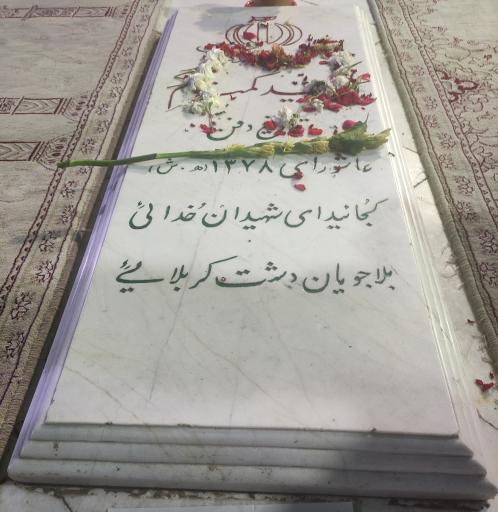 شهید گمنام
تاریخ دفن
عاشورای ۱۳۷۸ (ه‍.ش)
کجائید ای شهیدان خُدائی
بلاجویان دشت کربلائی